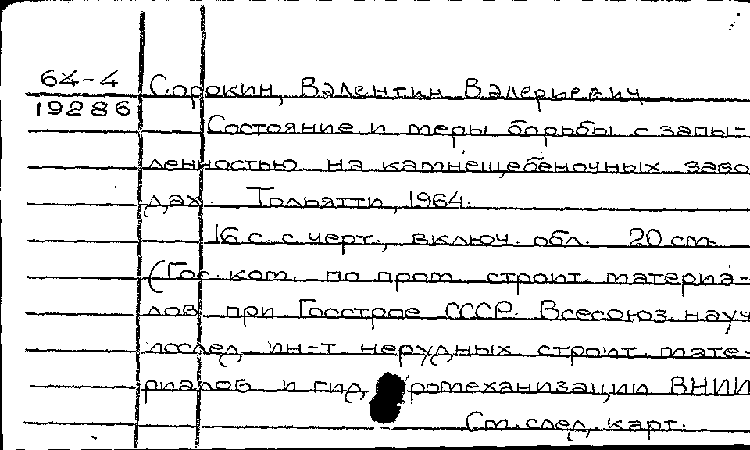 64-4
19286
Сорокин, Валентин Валерьевич
Состояние и меры борьбы с запы-
ленностью на камнещебеночных заво
дах. Тольятти, 1964.
16 с. с черт., включ. обл. 20 см.
(Гос. ком. по пром. строит. материа-
лов при Госстрое СССР. Всесоюз. науч
исслед. ин-т нерудных строит. мате-
риалов и гидромеханизации ВНИИ
См. след. карт.